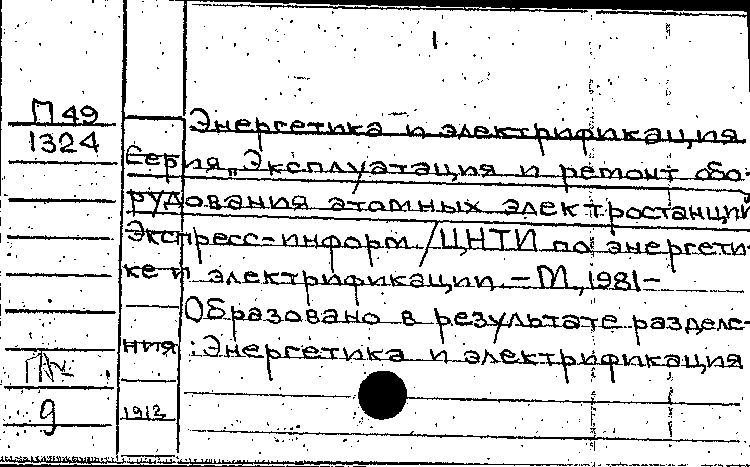 1
П 49
1324
Энергетика и электрификация.
Серия „Эксплуатация и ремонт обо-
рудования атомных электростанций
Экспресс-информ /ЦНТИ по энергети-
ке и электрификации. - М., 1981-
Образовано в результате разделе-
ния : Энергетика и электрификация
9
1912